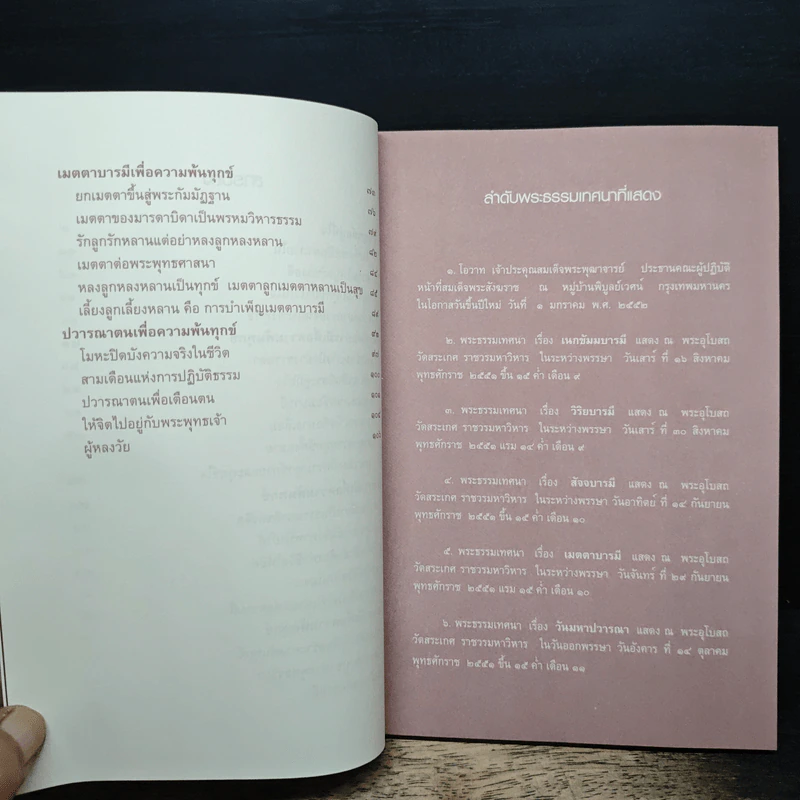 เมตตาบารมีเพื่อความพ้นทุกข์
ยกเมตตาขึ้นสู่พระกัมมัฏฐาน ๗๓
เมตตาของมารดาบิดาเป็นพรหมวิหารธรรม ๗๖
รักลูกรักหลานแต่อย่าหลงลูกหลงหลาน ๗๙
เมตตาต่อพระพุทธศาสนา ๘๒
หลงลูกหลงหลานเป็นทุกข์ เมตตาลูกเมตตาหลานเป็นสุข ๘๔
เลี้ยงลูกเลี้ยงหลาน คือ การบำเพ็ญเมตตาบารมี ๘๕
ปวารณาตนเพื่อความพ้นทุกข์
โมหะปิดบังความจริงในชีวิต
สามเดือนแห่งการปฏิบัติธรรม
ปวารณาตนเพื่อเตือนตน
ให้จิตไปอยู่กับพระพุทธเจ้า
ผู้หลงวัย
ลำดับพระธรรมเทศนาที่แสดง
๑. โอวาท เจ้าประคุณสมเด็จพระพุฒาจารย์ ประธานคณะผู้ปฏิบัติ
หน้าที่สมเด็จพระสังฆราช ณ หมู่บ้านพิบูลย์เวศน์ กรุงเทพมหานคร
ในโอกาสวันขึ้นปีใหม่ วันที่ ๑ มกราคม พ.ศ. ๒๕๕๒
๒. พระธรรมเทศนา เรื่อง เนกขัมมบารมี แสดง ณ พระอุโบสถ
วัดสระเกศ ราชวรมหาวิหาร ในระหว่างพรรษา วันเสาร์ ที่ ๑๖ สิงหาคม
พุทธศักราช ๒๕๕๑ ขึ้น ๑๕ ค่ำ เดือน ๙
๓. พระธรรมเทศนา เรื่อง วิริยบารมี แสดง ณ พระอุโบสถ
วัดสระเกศ ราชวรมหาวิหาร ในระหว่างพรรษา วันเสาร์ ที่ ๓๐ สิงหาคม
พุทธศักราช ๒๕๕๑ แรม ๑๔ ค่ำ เดือน ๙
๔. พระธรรมเทศนา เรื่อง สัจจบารมี แสดง ณ พระอุโบสถ
วัดสระเกศ ราชวรมหาวิหาร ในระหว่างพรรษา วันอาทิตย์ ที่ ๑๔ กันยายน
พุทธศักราช ๒๕๕๑ ขึ้น ๑๕ ค่ำ เดือน ๑๐
๕. พระธรรมเทศนา เรื่อง เมตตาบารมี แสดง ณ พระอุโบสถ
วัดสระเกศ ราชวรมหาวิหาร ในระหว่างพรรษา วันจันทร์ ที่ ๒๙ กันยายน
พุทธศักราช ๒๕๕๑ แรม ๑๕ ค่ำ เดือน ๑๐
๖. พระธรรมเทศนา เรื่อง วันมหาปวารณา แสดง ณ พระอุโบสถ
วัดสระเกศ ราชวรมหาวิหาร ในวันออกพรรษา วันอังคาร ที่ ๑๔ ตุลาคม
พุทธศักราช ๒๕๕๑ ขึ้น ๑๕ ค่ำ เดือน ๑๑